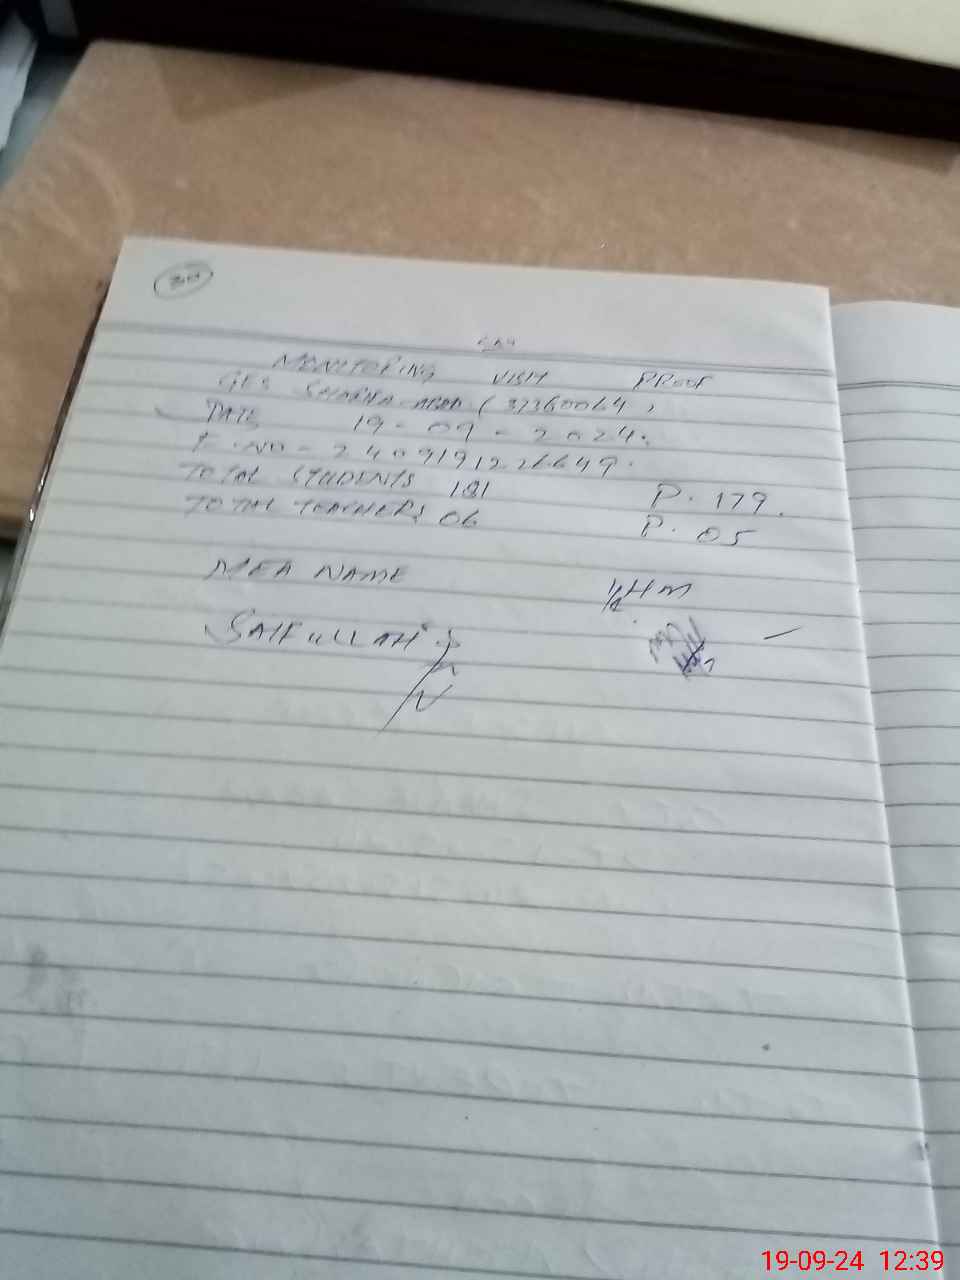 MONITORING VISIT PROOF
GES SHARKA ABAD (37360064)
DATE 19-09-2024.
TOTAL STUDENTS 181 P. 179.
TOTAL TEACHERS 06 P. 05
MEA NAME HM
SAIFULLAH
19-09-24 12:39